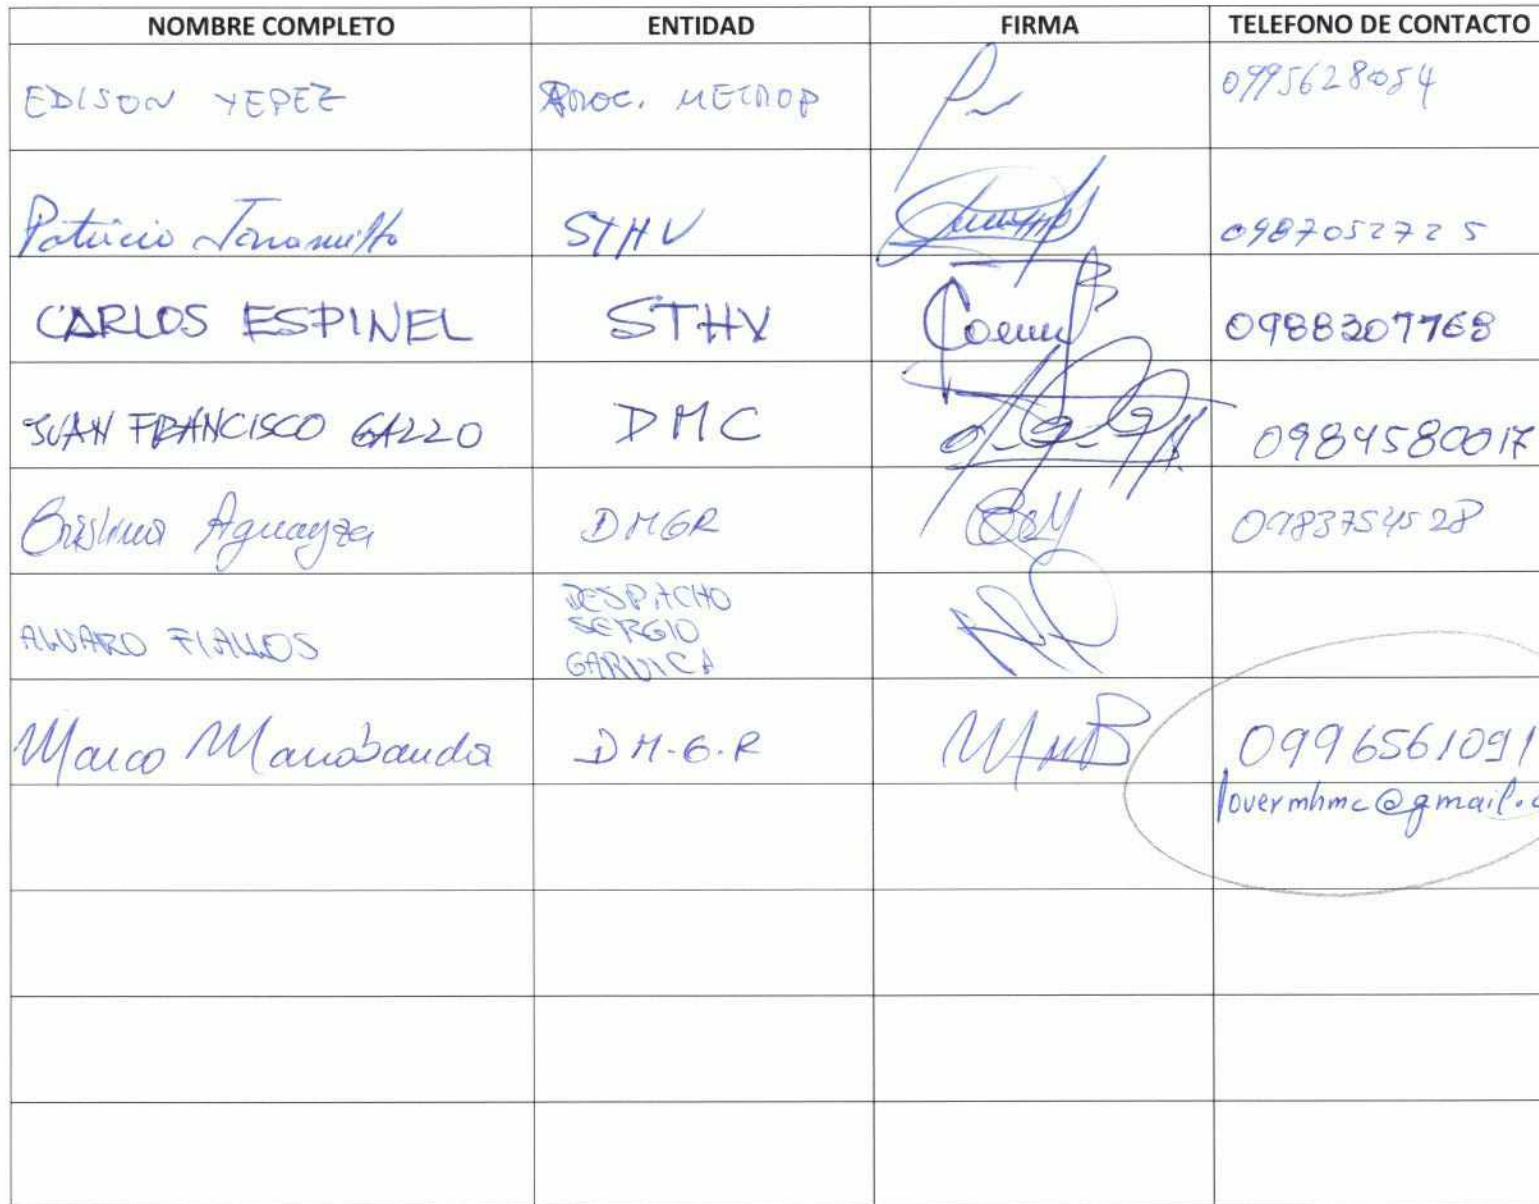 NOMBRE COMPLETO ENTIDAD FIRMA TELEFONO DE CONTACTO
EDISON YEPEZ PROC. METROP 0995628054
Patricio Jaramillo STHV 0987052725
CARLOS ESPINEL STHV 0988207768
JUAN FRANCISCO GALLO DMC 0984580017
Cristina Aguayza DMGR 0983754528
ALVARO FIALLOS DESPACHO
SERGIO
GARNICA
Marco Manobanda D M-G-R 0996561091
lovermhmc@gmail.c